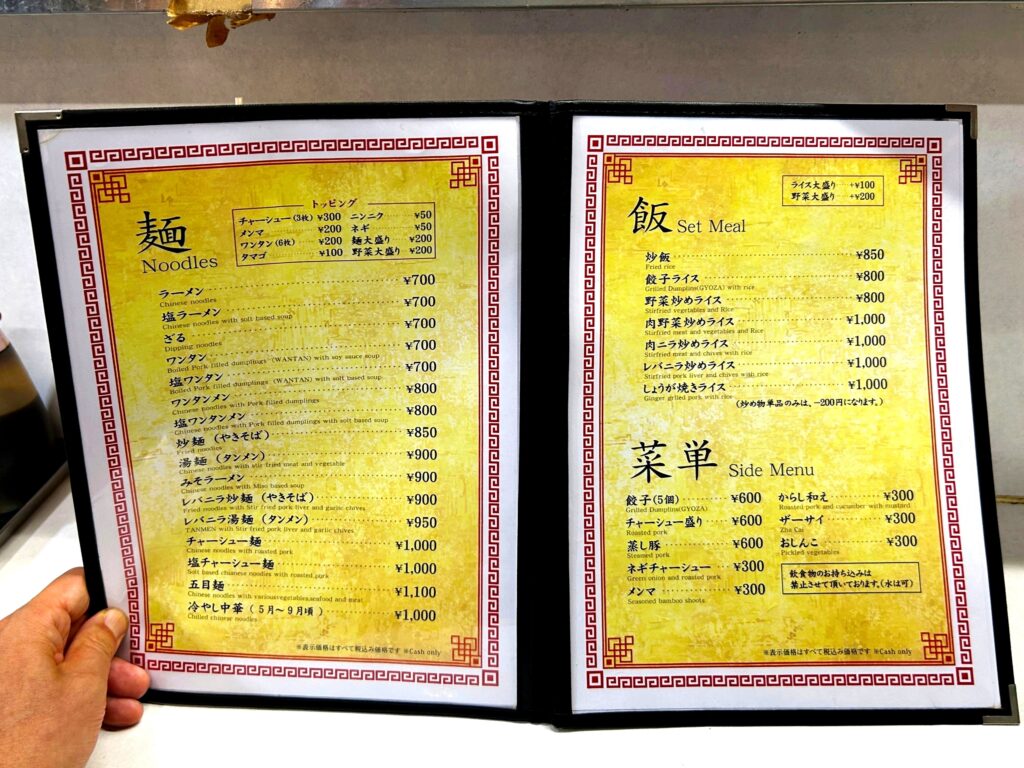 麺
Noodles
トッピング
チャーシュー(3枚) ¥300 ニンニク ¥50
メンマ ¥200 ネギ ¥50
ワンタン(6枚) ¥200 麺大盛り ¥200
タマゴ ¥100 野菜大盛り ¥200
ラーメン ¥700
Chinese noodles
塩ラーメン ¥700
Chinese noodles with solt based soup
ざる ¥700
Dipping noodles
ワンタン ¥700
Boiled Pork filled dumplings (WANTAN) with soy sauce soup
塩ワンタン ¥700
Boiled Pork filled dumplings (WANTAN) with solt based soup
ワンタンメン ¥800
Chinese noodles with Pork filled dumplings
塩ワンタンメン ¥800
Chinese noodles with Pork filled dumplings with solt based soup
炒麺（やきそば） ¥850
Fried noodles
湯麺（タンメン） ¥900
Chinese noodles with stir fried meat and vegetable
みそラーメン ¥900
Chinese noodles with Miso based soup
レバニラ炒麺（やきそば） ¥900
Fried noodles with Stir fried pork liver and garlic chives
レバニラ湯麺（タンメン） ¥950
TANMEN with Stir fried pork liver and garlic chives
チャーシュー麺 ¥1,000
Chinese noodles with roasted pork
塩チャーシュー麺 ¥1,000
Solt based chainese noodles with roasted pork
五目麺 ¥1,100
Chinese noodles with variousvegetables,seafood and meat
冷やし中華（5月〜9月頃） ¥1,000
Chilled chinese noodles
※表示価格はすべて税込み価格です ※Cash only
ライス大盛り +¥100
野菜大盛り +¥200
飯 Set Meal
炒飯 ¥850
Fried rice
餃子ライス ¥800
Grilled Dumplins(GYOZA) with rice
野菜炒めライス ¥800
Stirfried vegetables and Rice
肉野菜炒めライス ¥1,000
Stirfried meat and vegetables and Rice
肉ニラ炒めライス ¥1,000
Stirfried meat and chives with rice
レバニラ炒めライス ¥1,000
Stirfried pork liver and chives with rice
しょうが焼きライス ¥1,000
Ginger grlled pork with rice
(炒め物単品のみは、−200円になります。)
菜単 Side Menu
餃子(5個) ¥600
Grilled Dumplins(GYOZA)
チャーシュー盛り ¥600
Roasted pork
蒸し豚 ¥600
Steamed pork
ネギチャーシュー ¥300
Green onion and roasted pork
メンマ ¥300
Seasoned bamboo shoots
からし和え ¥300
Roasted pork and cucumber with mustard
ザーサイ ¥300
Zha Cai
おしんこ ¥300
Pickled vegetables
飲食物のお持ち込みは
禁止させて頂いております。(水は可)
※表示価格はすべて税込み価格です ※Cash only